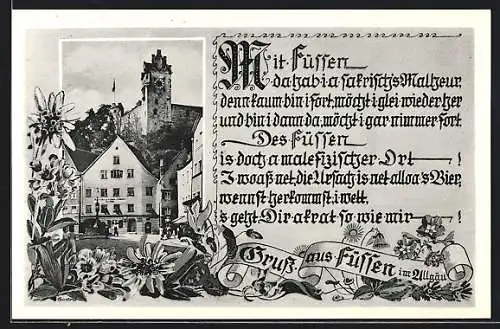 Mit Füssen
da hab i a sakrisch's Malheur,
denn kaum bin i fort, möcht i glei wieder her
und bin i dann da, möcht i gar nimmer fort.
Des Füssen
is doch a malefizischer Ort !
I woaß net, die Ursach is net alloa's Bier,
wennst herkommst, i wett,
's geht Dir akrat so wie mir !
Gruß aus Füssen im Allgäu